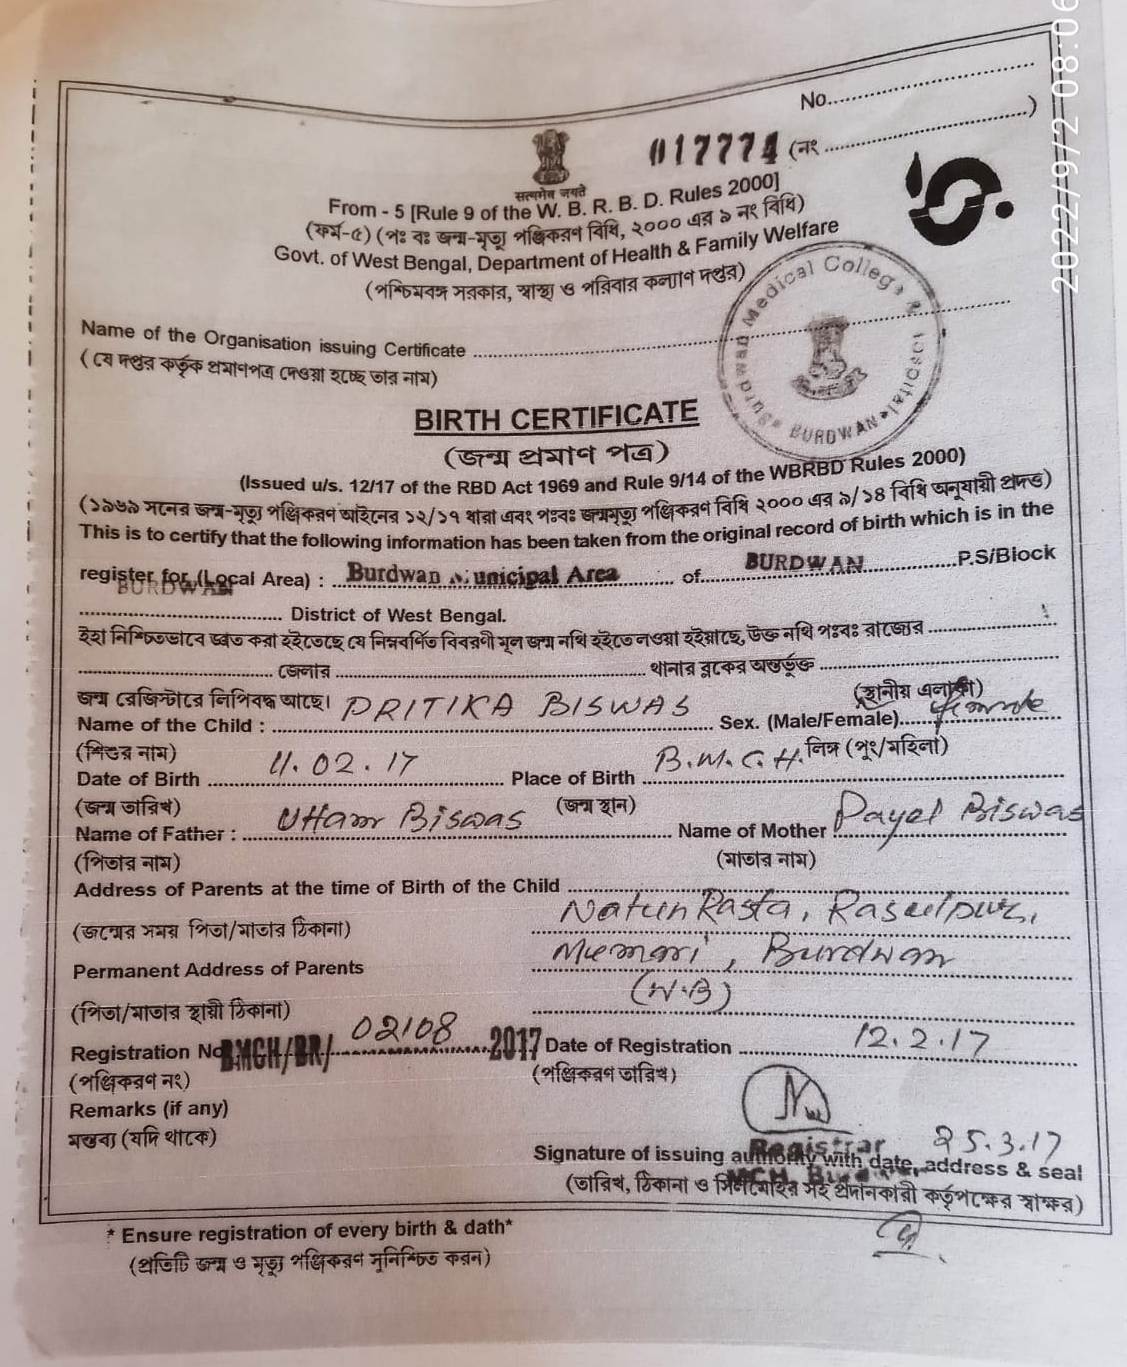 2022/9/2 08:06
No.
017774 (নং )
सत्यमेव जयते
From - 5 [Rule 9 of the W. B. R. B. D. Rules 2000]
(ফর্ম-৫) (পঃ বঃ জন্ম-মৃত্যু পঞ্জিকরণ বিধি, ২০০০ এর ৯ নং বিধি)
Govt. of West Bengal, Department of Health & Family Welfare
(পশ্চিমবঙ্গ সরকার, স্বাস্থ্য ও পরিবার কল্যাণ দপ্তর)
Burdwan Medical College & Hospital
BURDWAN
Name of the Organisation issuing Certificate
(যে দপ্তর কর্তৃক প্রমাণপত্র দেওয়া হচ্ছে তার নাম)
BIRTH CERTIFICATE
(জন্ম প্রমাণ পত্র)
(Issued u/s. 12/17 of the RBD Act 1969 and Rule 9/14 of the WBRBD Rules 2000)
(১৯৬৯ সনের জন্ম-মৃত্যু পঞ্জিকরণ আইনের ১২/১৭ ধারা এবং পঃবঃ জন্মমৃত্যু পঞ্জিকরণ বিধি ২০০০ এর ৯/১৪ বিধি অনুযায়ী প্রদত্ত)
This is to certify that the following information has been taken from the original record of birth which is in the
register for (Local Area) : Burdwan Municipal Area of BURDWAN P.S/Block
BURDWAN District of West Bengal.
ইহা নিশ্চিতভাবে ব্যক্ত করা হইতেছে যে নিম্নবর্ণিত বিবরণী মূল জন্ম নথি হইতে নওয়া হইয়াছে, উক্ত নথি পঃবঃ রাজ্যের
জেলার থানার ব্লকের অন্তর্ভুক্ত
জন্ম রেজিস্টারে লিপিবদ্ধ আছে। (স্থানীয় এলাকা)
Name of the Child : PRITIKA BISWAS Sex. (Male/Female) Female
(শিশুর নাম) লিঙ্গ (পুং/মহিলা)
Date of Birth 11.02.17 Place of Birth B.M.C.H.
(জন্ম তারিখ) (জন্ম স্থান)
Name of Father : Uttam Biswas Name of Mother Payel Biswas
(পিতার নাম) (মাতার নাম)
Address of Parents at the time of Birth of the Child
Natun Rasta, Rasulpur,
(জন্মের সময় পিতা/মাতার ঠিকানা)
Memari, Burdwan
Permanent Address of Parents
(W.B)
(পিতা/মাতার স্থায়ী ঠিকানা)
Registration No BMCH/BR/ 02108 2017 Date of Registration 12.2.17
(পঞ্জিকরণ নং) (পঞ্জিকরণ তারিখ)
Remarks (if any)
মন্তব্য (যদি থাকে)
Registrar 25.3.17
Signature of issuing authority with date, address & seal
(তারিখ, ঠিকানা ও সিলমোহর সহ প্রদানকারী কর্তৃপক্ষের স্বাক্ষর)
* Ensure registration of every birth & dath*
(প্রতিটি জন্ম ও মৃত্যু পঞ্জিকরণ সুনিশ্চিত করুন)